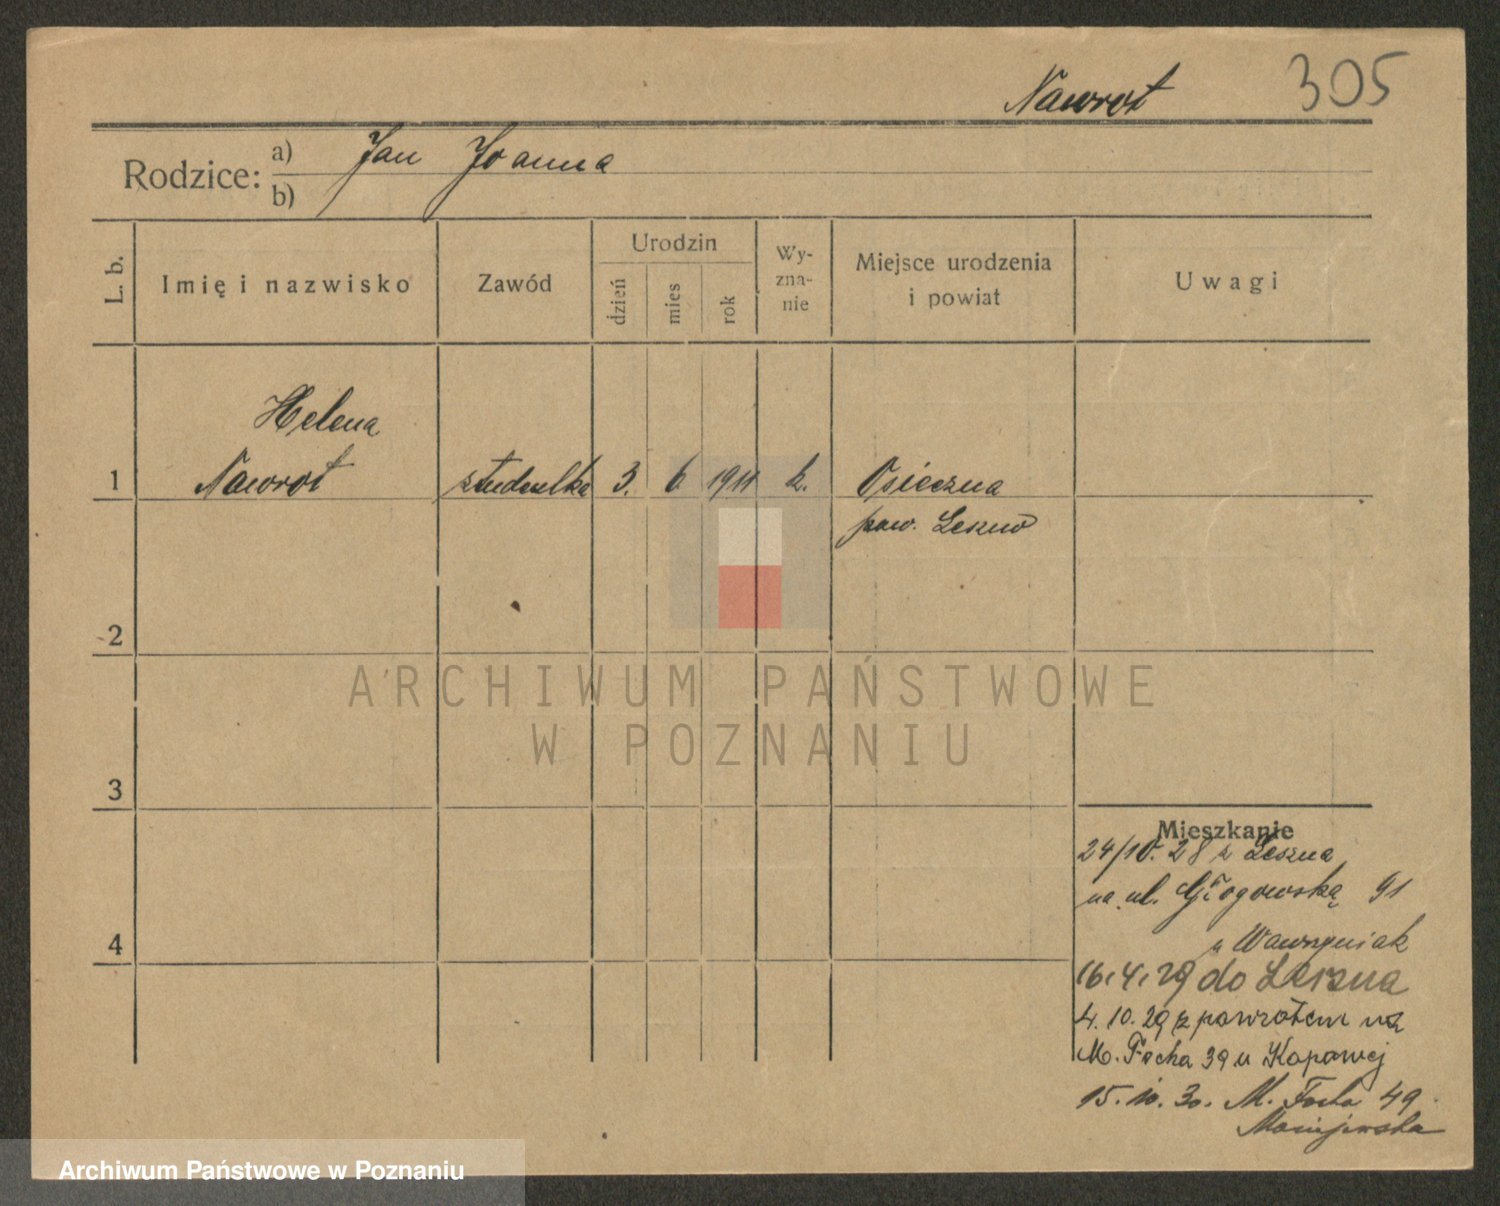 Nawrot 305
Rodzice: a) Jan Joanna
b)
L. b.
Imię i nazwisko
Zawód
Urodzin
dzień
mies
rok
Wy-
zna-
nie
Miejsce urodzenia
i powiat
Uwagi
Helena
1 Nawrot 3. 6. k. Osieczna
pow. Leszno
2
3
4
Mieszkanie
24/10. 28 z Leszna
na ul. Głogowską 91
u Wawrzyniak
16. 4. 29 do Leszna
4. 10. 29 z powrotem na
M. Focha 39 u
15. 10. 30. M. Focha 49
Maciejewska
ARCHIWUM PAŃSTWOWE
W POZNANIU
Archiwum Państwowe w Poznaniu